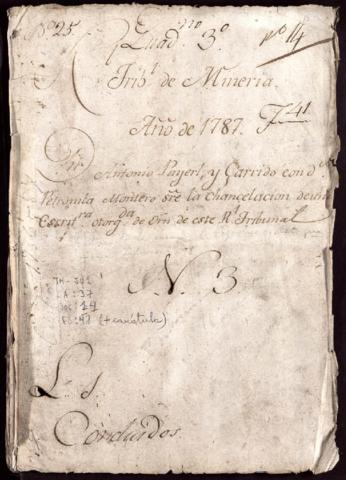 Nº 25.
Quadno 3º
nº 14
Tribl de Mineria.
Año de 1787.
F 41
Antonio Payeri, y Garrido con dª
Petronila Montero sre la Chancelacion de una
Escritra otorgda de Orn de este Rl Tribunal
N. 3
TM-JO1
CA: 37
DOC: 14
FS: 42 (+ carátula)
L. S.
Concluidos